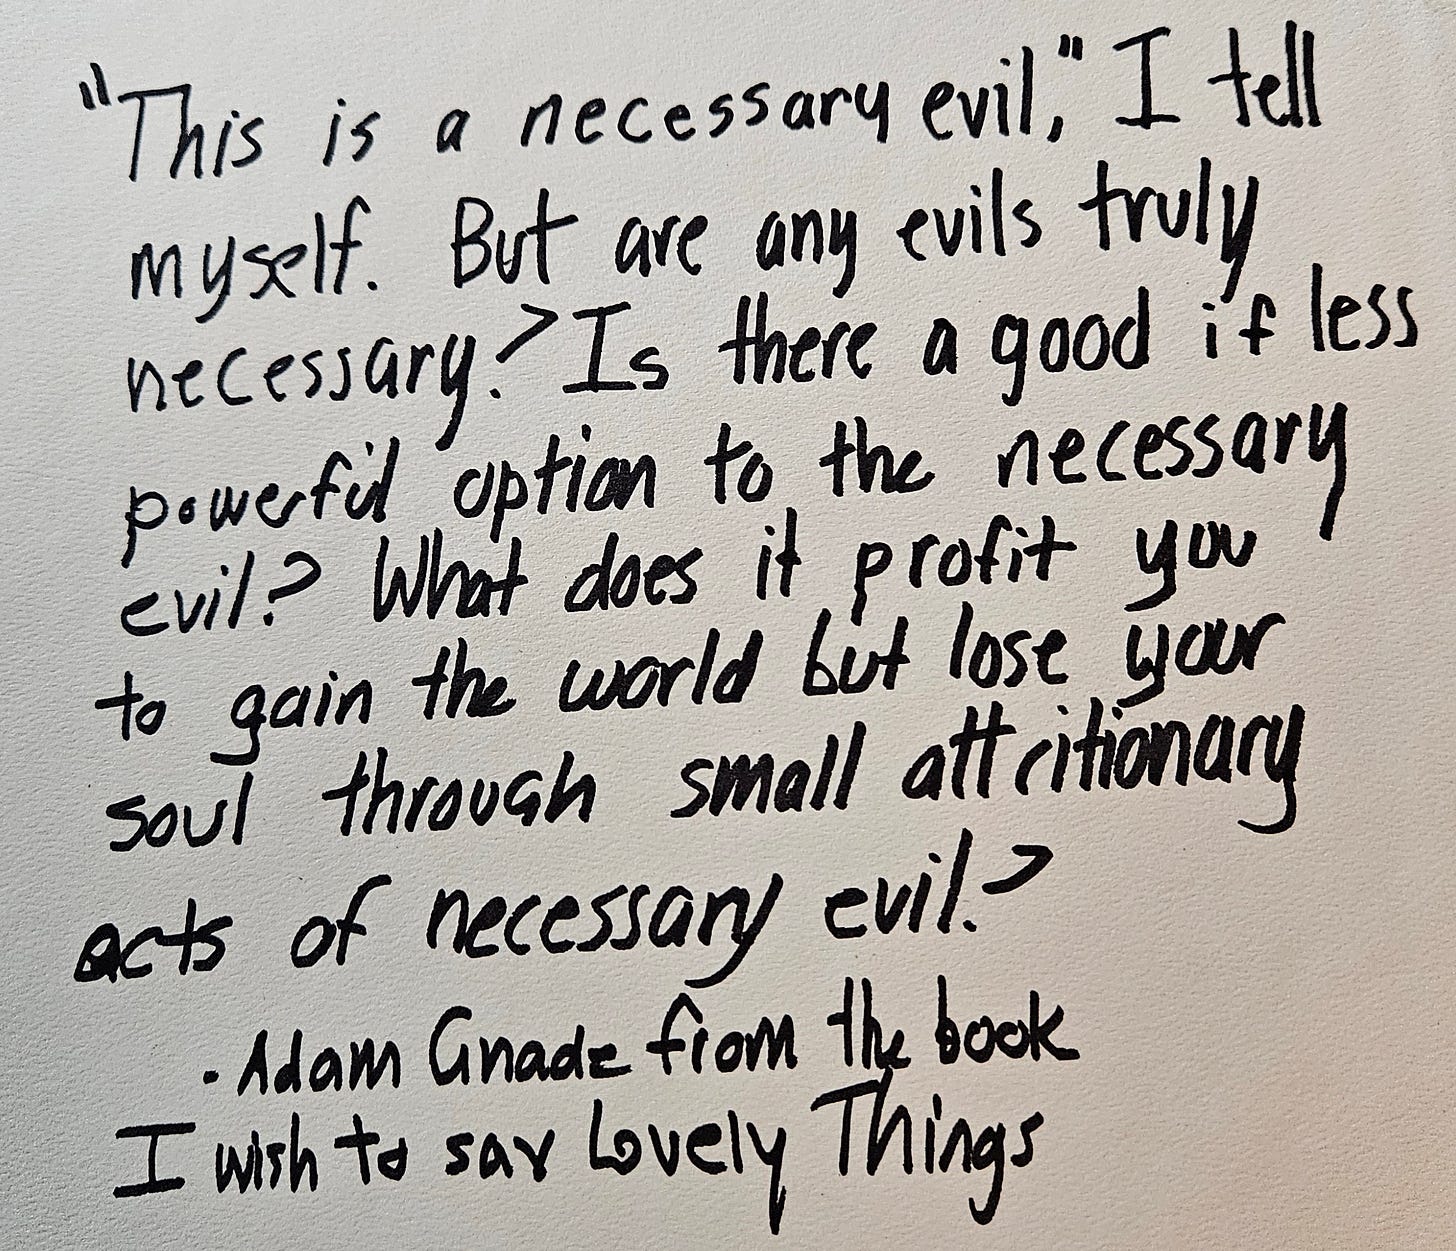 "This is a necessary evil," I tell
myself. But are any evils truly
necessary? Is there a good if less
powerful option to the necessary
evil? What does it profit you
to gain the world but lose your
soul through small attritionary
acts of necessary evil?
- Adam Gnade from the book
I wish to say Lovely Things